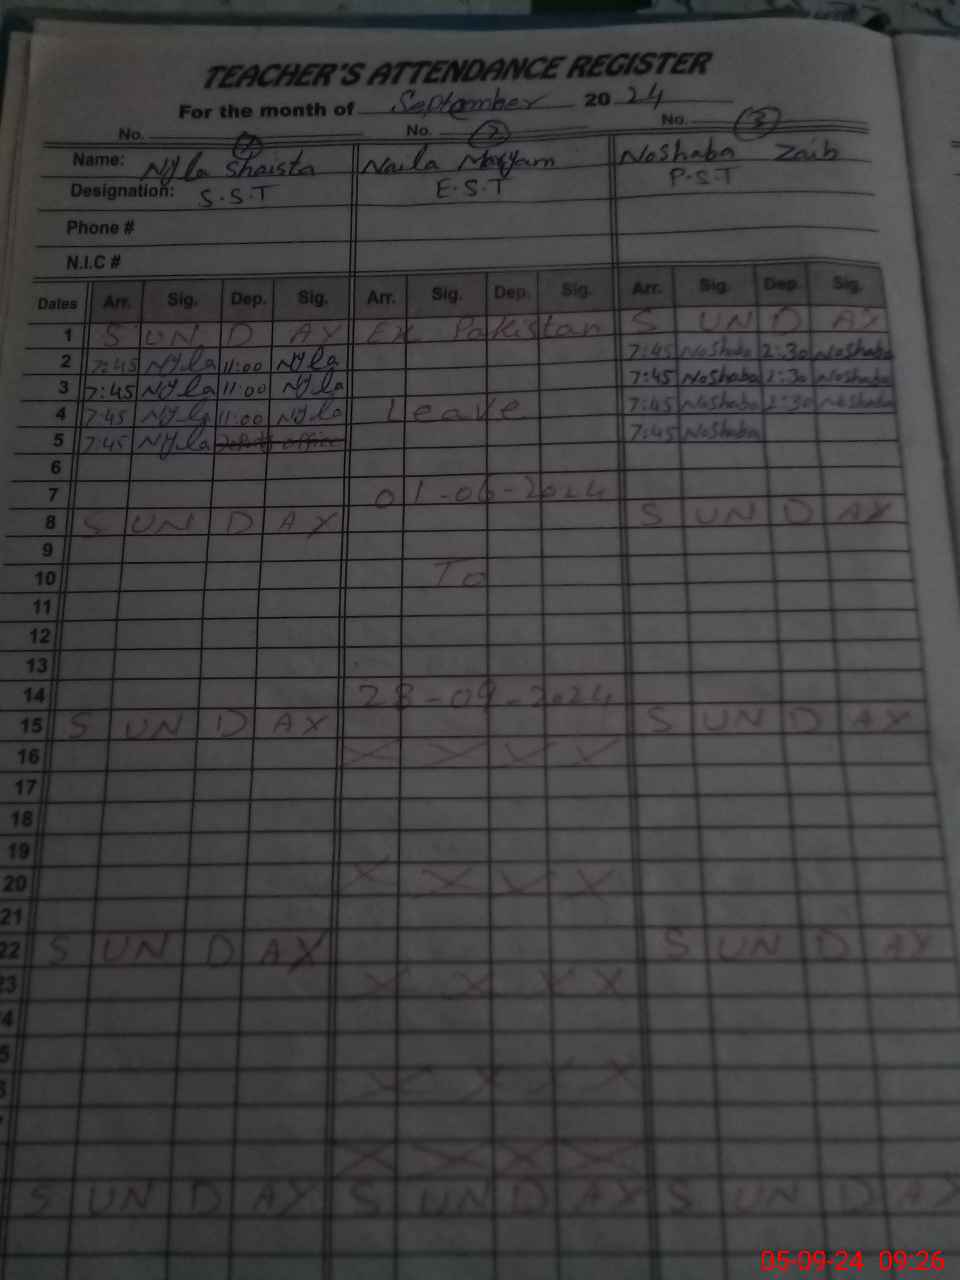 TEACHER'S ATTENDANCE REGISTER
For the month of September 2024
No. 1 No. 2 No. 3
Name: Nyla Shaista Naila Maryam NoShaba Zaib
Designation: S.S.T E.S.T P.S.T
Phone #
N.I.C #
Dates Arr. Sig. Dep. Sig. Arr. Sig. Dep. Sig. Arr. Sig. Dep. Sig.
1 S UN D AY Ex Pakistan S UN D AY
2 7:45 Nyla 11:00 Nyla 7:45 NoShaba 2:30 NoShaba
3 7:45 Nyla 11:00 Nyla 7:45 NoShaba 2:30 NoShaba
4 7:45 Nyla 11:00 Nyla Leave 7:45 NoShaba 2:30 NoShaba
5 7:45 Nyla office 7:45 NoShaba
6
7 01-06-2024
8 S UN D AY S UN D AY
9
10 To
11
12
13
14 28-09-2024
15 S UN D AY S UN D AY
16 X X X X
17
18
19
20 X X X X
21
22 S UN D AY S UN D AY
23 X X X X
4
5
6 X X X X
X X X X
S UN D AY S UN D AY S UN D AY
05-09-24 09:26